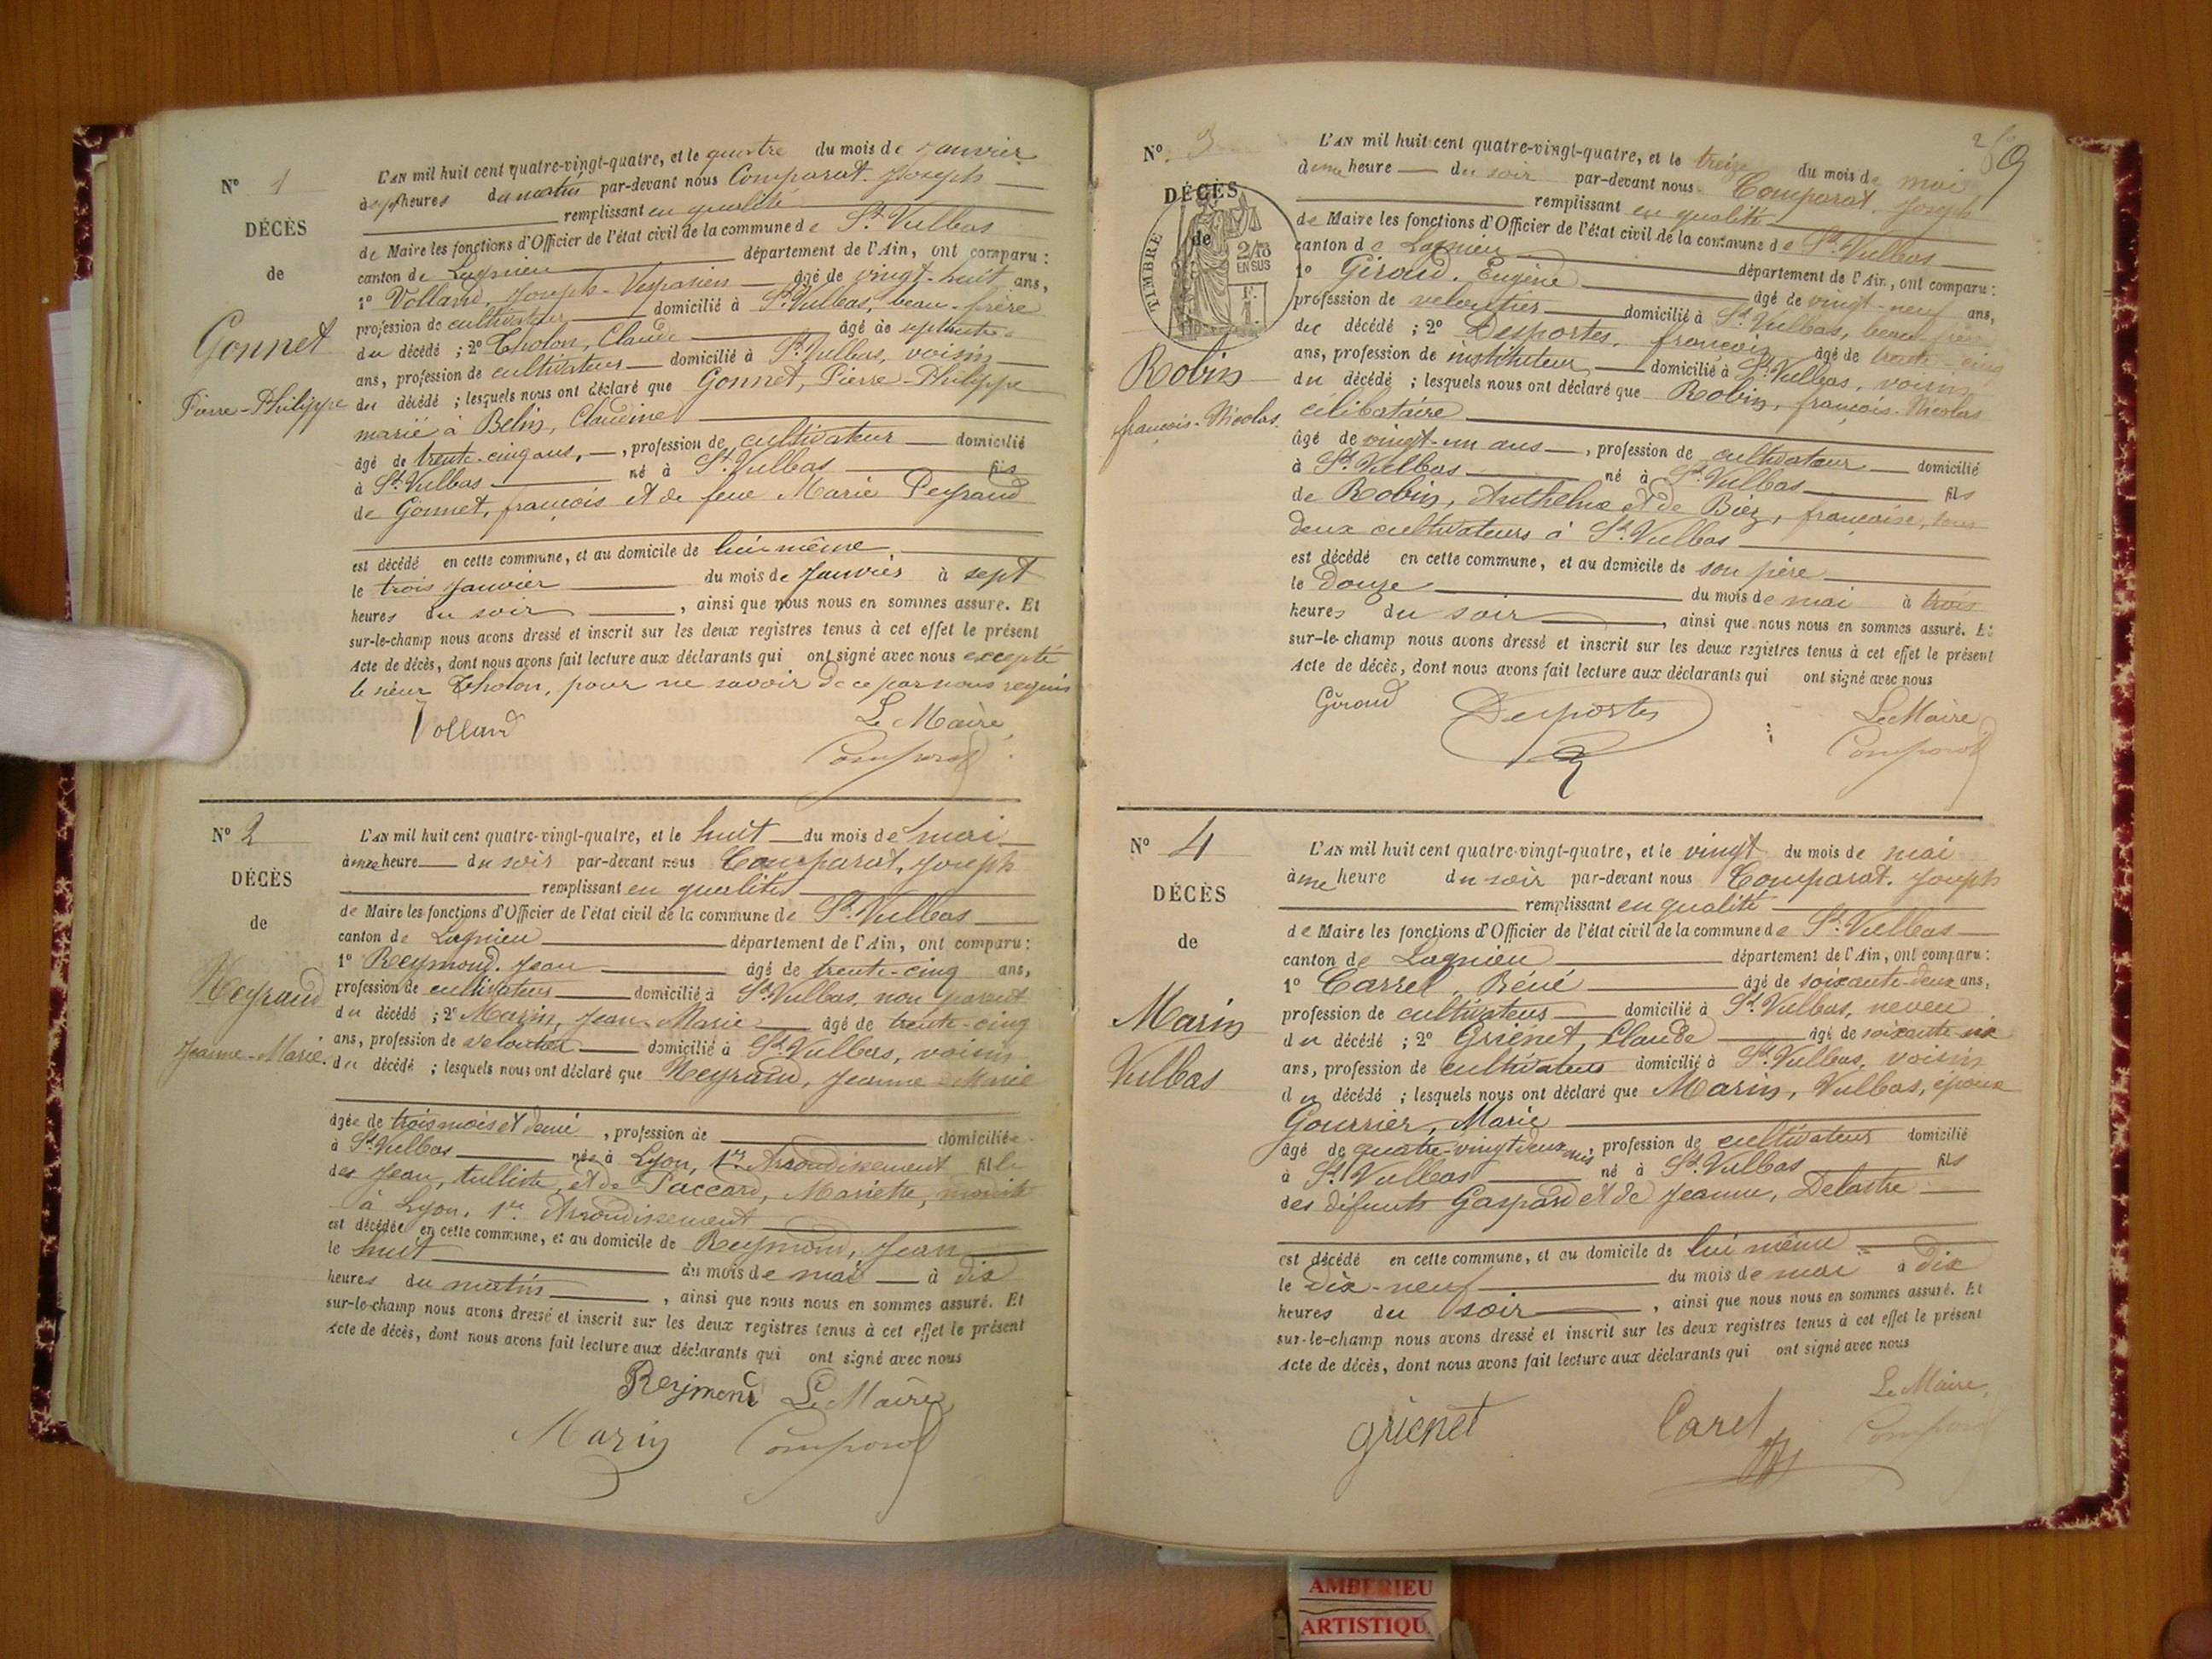 N° 1
DÉCÈS
de
Gonnet
Pierre-Philippe
L'AN mil huit cent quatre-vingt-quatre, et le quatre du mois de Janvier
à sept heures du matin par-devant nous Comparat. Joseph
remplissant en qualité
de Maire les fonctions d'Officier de l'état civil de la commune de St. Vulbas
canton de Lagnieu département de l'Ain, ont comparu :
1° Volland, Joseph-Vespasien âgé de vingt-huit ans,
profession de cultivateur domicilié à St. Vulbas, beau-frère
du décédé ; 2° Tholon, Claude âgé de septante
ans, profession de cultivateur domicilié à St. Vulbas, voisin
du décédé ; lesquels nous ont déclaré que Gonnet, Pierre-Philippe
marié à Belin, Claudine
âgé de trente-cinq ans, , profession de cultivateur domicilié
à St. Vulbas né à St. Vulbas fils
de Gonnet, françois et de feue Marie Peyraud
est décédé en cette commune, et au domicile de lui-même
le trois Janvier du mois de Janvier à sept
heures du soir , ainsi que nous nous en sommes assuré. Et
sur-le-champ nous avons dressé et inscrit sur les deux registres tenus à cet effet le présent
Acte de décès, dont nous avons fait lecture aux déclarants qui ont signé avec nous excepté
le sieur Tholon, pour ne savoir de ce par nous requis
Volland Le Maire,
Comparat
N° 2
DÉCÈS
de
Neyraud
Jeanne-Marie.
L'AN mil huit cent quatre-vingt-quatre, et le huit du mois de mai
à une heure du soir par-devant nous Comparat, Joseph
remplissant en qualité
de Maire les fonctions d'Officier de l'état civil de la commune de St. Vulbas
canton de Lagnieu département de l'Ain, ont comparu :
1° Reymond. Jean âgé de trente-cinq ans,
profession de cultivateur domicilié à St. Vulbas, non parent
du décédé ; 2° Marin, Jean-Marie âgé de trente-cinq
ans, profession de veloutier domicilié à St. Vulbas, voisin
du décédé ; lesquels nous ont déclaré que Neyraud, Jeanne-Marie
âgée de trois mois et demi , profession de domiciliée
à St. Vulbas née à Lyon, 1er Arrondissement fille
des Jean, tulliste, et de Paccard, Mariette,
à Lyon, 1er Arrondissement
est décédée en cette commune, et au domicile de Reymond, Jean
le huit du mois de mai à dix
heures du matin , ainsi que nous nous en sommes assuré. Et
sur-le-champ nous avons dressé et inscrit sur les deux registres tenus à cet effet le présent
Acte de décès, dont nous avons fait lecture aux déclarants qui ont signé avec nous
Reymond Le Maire,
Marin Comparat
N° 3
DÉCÈS
de
TIMBRE
2/10
EN SUS
Robin
françois-Nicolas.
L'AN mil huit cent quatre-vingt-quatre, et le treize du mois de mai
à une heure du soir par-devant nous Comparat. Joseph
remplissant en qualité
de Maire les fonctions d'Officier de l'état civil de la commune de St. Vulbas
canton de Lagnieu département de l'Ain, ont comparu :
1° Giroud. Eugène âgé de vingt-neuf ans,
profession de veloutier domicilié à St. Vulbas, beau-frère
du décédé ; 2° Desportes, françois âgé de trente-cinq
ans, profession de instituteur domicilié à St. Vulbas, voisin
du décédé ; lesquels nous ont déclaré que Robin, françois-Nicolas
célibataire
âgé de vingt-un ans , profession de cultivateur domicilié
à St. Vulbas né à St. Vulbas fils
de Robin, Anthelme et de Biez, françoise, tous
deux cultivateurs à St. Vulbas
est décédé en cette commune, et au domicile de son père
le douze du mois de mai à trois
heures du soir , ainsi que nous nous en sommes assuré. Et
sur-le-champ nous avons dressé et inscrit sur les deux registres tenus à cet effet le présent
Acte de décès, dont nous avons fait lecture aux déclarants qui ont signé avec nous
Giroud Desportes Le Maire,
Comparat
N° 4
DÉCÈS
de
Marin
Vulbas
L'AN mil huit cent quatre-vingt-quatre, et le vingt du mois de mai
à une heure du soir par-devant nous Comparat. Joseph
remplissant en qualité
de Maire les fonctions d'Officier de l'état civil de la commune de St. Vulbas
canton de Lagnieu département de l'Ain, ont comparu :
1° Carrel, Réné âgé de soixante-deux ans,
profession de cultivateur domicilié à St. Vulbas, neveu
du décédé ; 2° Griénet, Claude âgé de soixante-six
ans, profession de cultivateur domicilié à St. Vulbas, voisin
du décédé ; lesquels nous ont déclaré que Marin, Vulbas, époux
Gourrier, Marie
âgé de quatre-vingt deux ans , profession de cultivateur domicilié
à St. Vulbas né à St. Vulbas fils
des défunts Gaspard et de Jeanne, Delastre
est décédé en cette commune, et au domicile de lui même
le dix-neuf du mois de mai à dix
heures du soir , ainsi que nous nous en sommes assuré. Et
sur-le-champ nous avons dressé et inscrit sur les deux registres tenus à cet effet le présent
Acte de décès, dont nous avons fait lecture aux déclarants qui ont signé avec nous
Le Maire,
Griénet Carel Comparat
AMBERIEU
ARTISTIQU